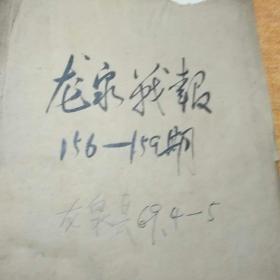 龙泉战報
156—159期
龙泉县69.4—5